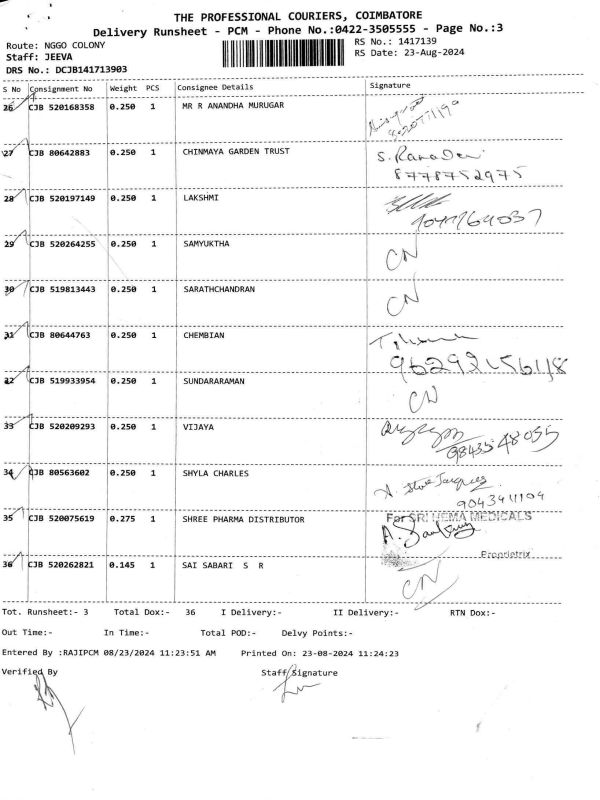 THE PROFESSIONAL COURIERS, COIMBATORE
Delivery Runsheet - PCM - Phone No.:0422-3505555 - Page No.:3
Route: NGGO COLONY
RS No.: 1417139
Staff: JEEVA
RS Date: 23-Aug-2024
DRS No.: DCJB141713903
S No Consignment No Weight PCS Consignee Details Signature
26 CJB 520168358 0.250 1 MR R ANANDHA MURUGAR
27 CJB 80642883 0.250 1 CHINMAYA GARDEN TRUST S. Rama Devi
8778752975
28 CJB 520197149 0.250 1 LAKSHMI
29 CJB 520264255 0.250 1 SAMYUKTHA CN
30 CJB 519813443 0.250 1 SARATHCHANDRAN CN
31 CJB 80644763 0.250 1 CHEMBIAN
32 CJB 519933954 0.250 1 SUNDARARAMAN CN
33 CJB 520209293 0.250 1 VIJAYA
9843548055
34 CJB 80563602 0.250 1 SHYLA CHARLES
35 CJB 520075619 0.275 1 SHREE PHARMA DISTRIBUTOR For SRI HEMA MEDICALS
Proprietrix
36 CJB 520262821 0.145 1 SAI SABARI S R CN
Tot. Runsheet:- 3 Total Dox:- 36 I Delivery:- II Delivery:- RTN Dox:-
Out Time:- In Time:- Total POD:- Delvy Points:-
Entered By :RAJIPCM 08/23/2024 11:23:51 AM Printed On: 23-08-2024 11:24:23
Verified By Staff Signature